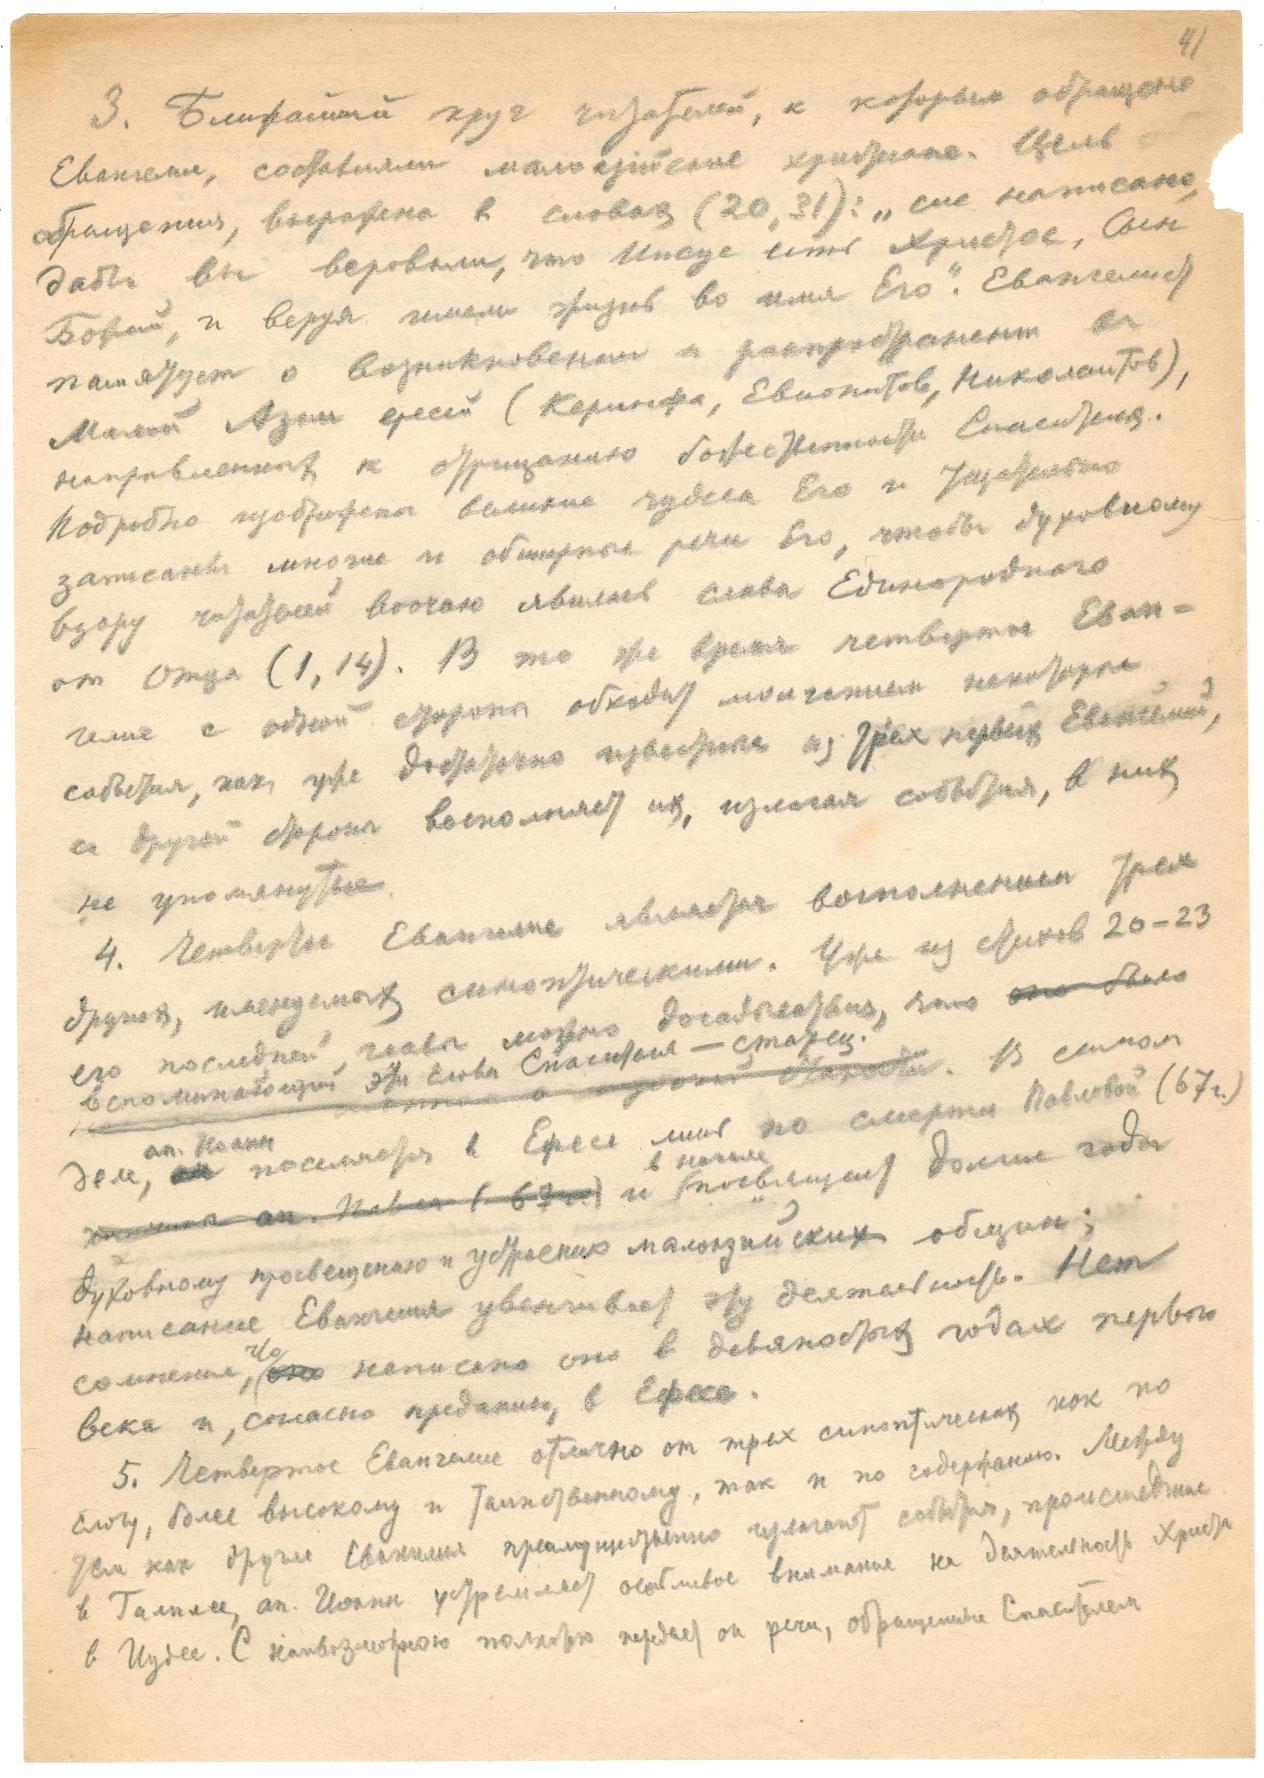 41
3. Ближайший круг читателей, к которым обращено
Евангелие, составляли малоазийские христиане. Цель
обращения, выражена в словах (20, 31): „сие написано,
дабы вы веровали, что Иисус есть Христос, Сын
Божий, и веруя имели жизнь во имя Его". Евангелист
памятует о возникновении и распространении в
Малой Азии ересей (Керинфа, Евионитов, Николаитов),
направленных к отрицанию божественности Спасителя.
Подробно изображены великие чудеса Его и тщательно
записаны многие и обширные речи Его, чтобы духовному
взору читателей воочию явилась слава Единородного
от Отца (1, 14). В то же время четвертое Еван-
гелие с одной стороны обходит молчанием некоторые
события, как уже достаточно известные из трех первых Евангелий,
с другой стороны восполняет их, излагая события, в них
не упомянутые.
4. Четвертое Евангелие является восполнением трех
других, именуемых синоптическими. Уже из стихов 20–23
его последней главы можно догадываться, что оно было
вспоминающий эти слова Спасителя — старец.
В самом
деле, ап. Иоанн поселяется в Ефесе лишь по смерти Павловой (67 г.)
ап. Павла (67 г.) и в начале посвящает долгие годы
духовному просвещению и устроению малоазийских общин;
написание Евангелия увенчивает эту деятельность. Нет
сомнения, что оно написано оно в девяностых годах первого
века и, согласно преданию, в Ефесе.
5. Четвертое Евангелие отлично от трех синоптических как по
слогу, более высокому и таинственному, так и по содержанию. Между
тем как другие Евангелия преимущественно излагают события, происшедшие
в Галилее, ап. Иоанн устремляет особливое внимание на деятельность Христа
в Иудее. С наивозможною полнотою передает он речи, обращенные Спасителем